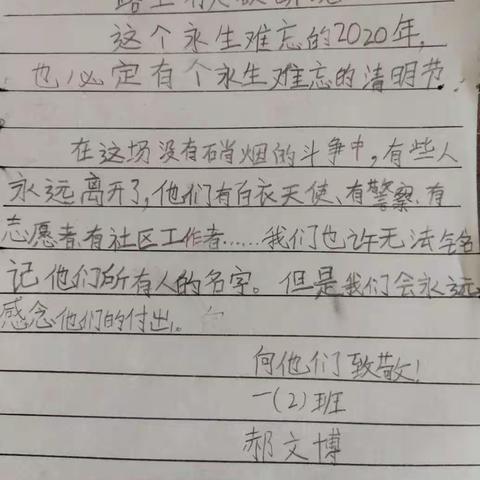 这个永生难忘的2020年,
也必定有个永生难忘的清明节.
在这场没有硝烟的斗争中,有些人
永远离开了,他们有白衣天使、有警察、有
志愿者、有社区工作者……我们也许无法铭
记他们所有人的名字。但是我们会永远
感念他们的付出。
向他们致敬!
一(2)班
郝文博